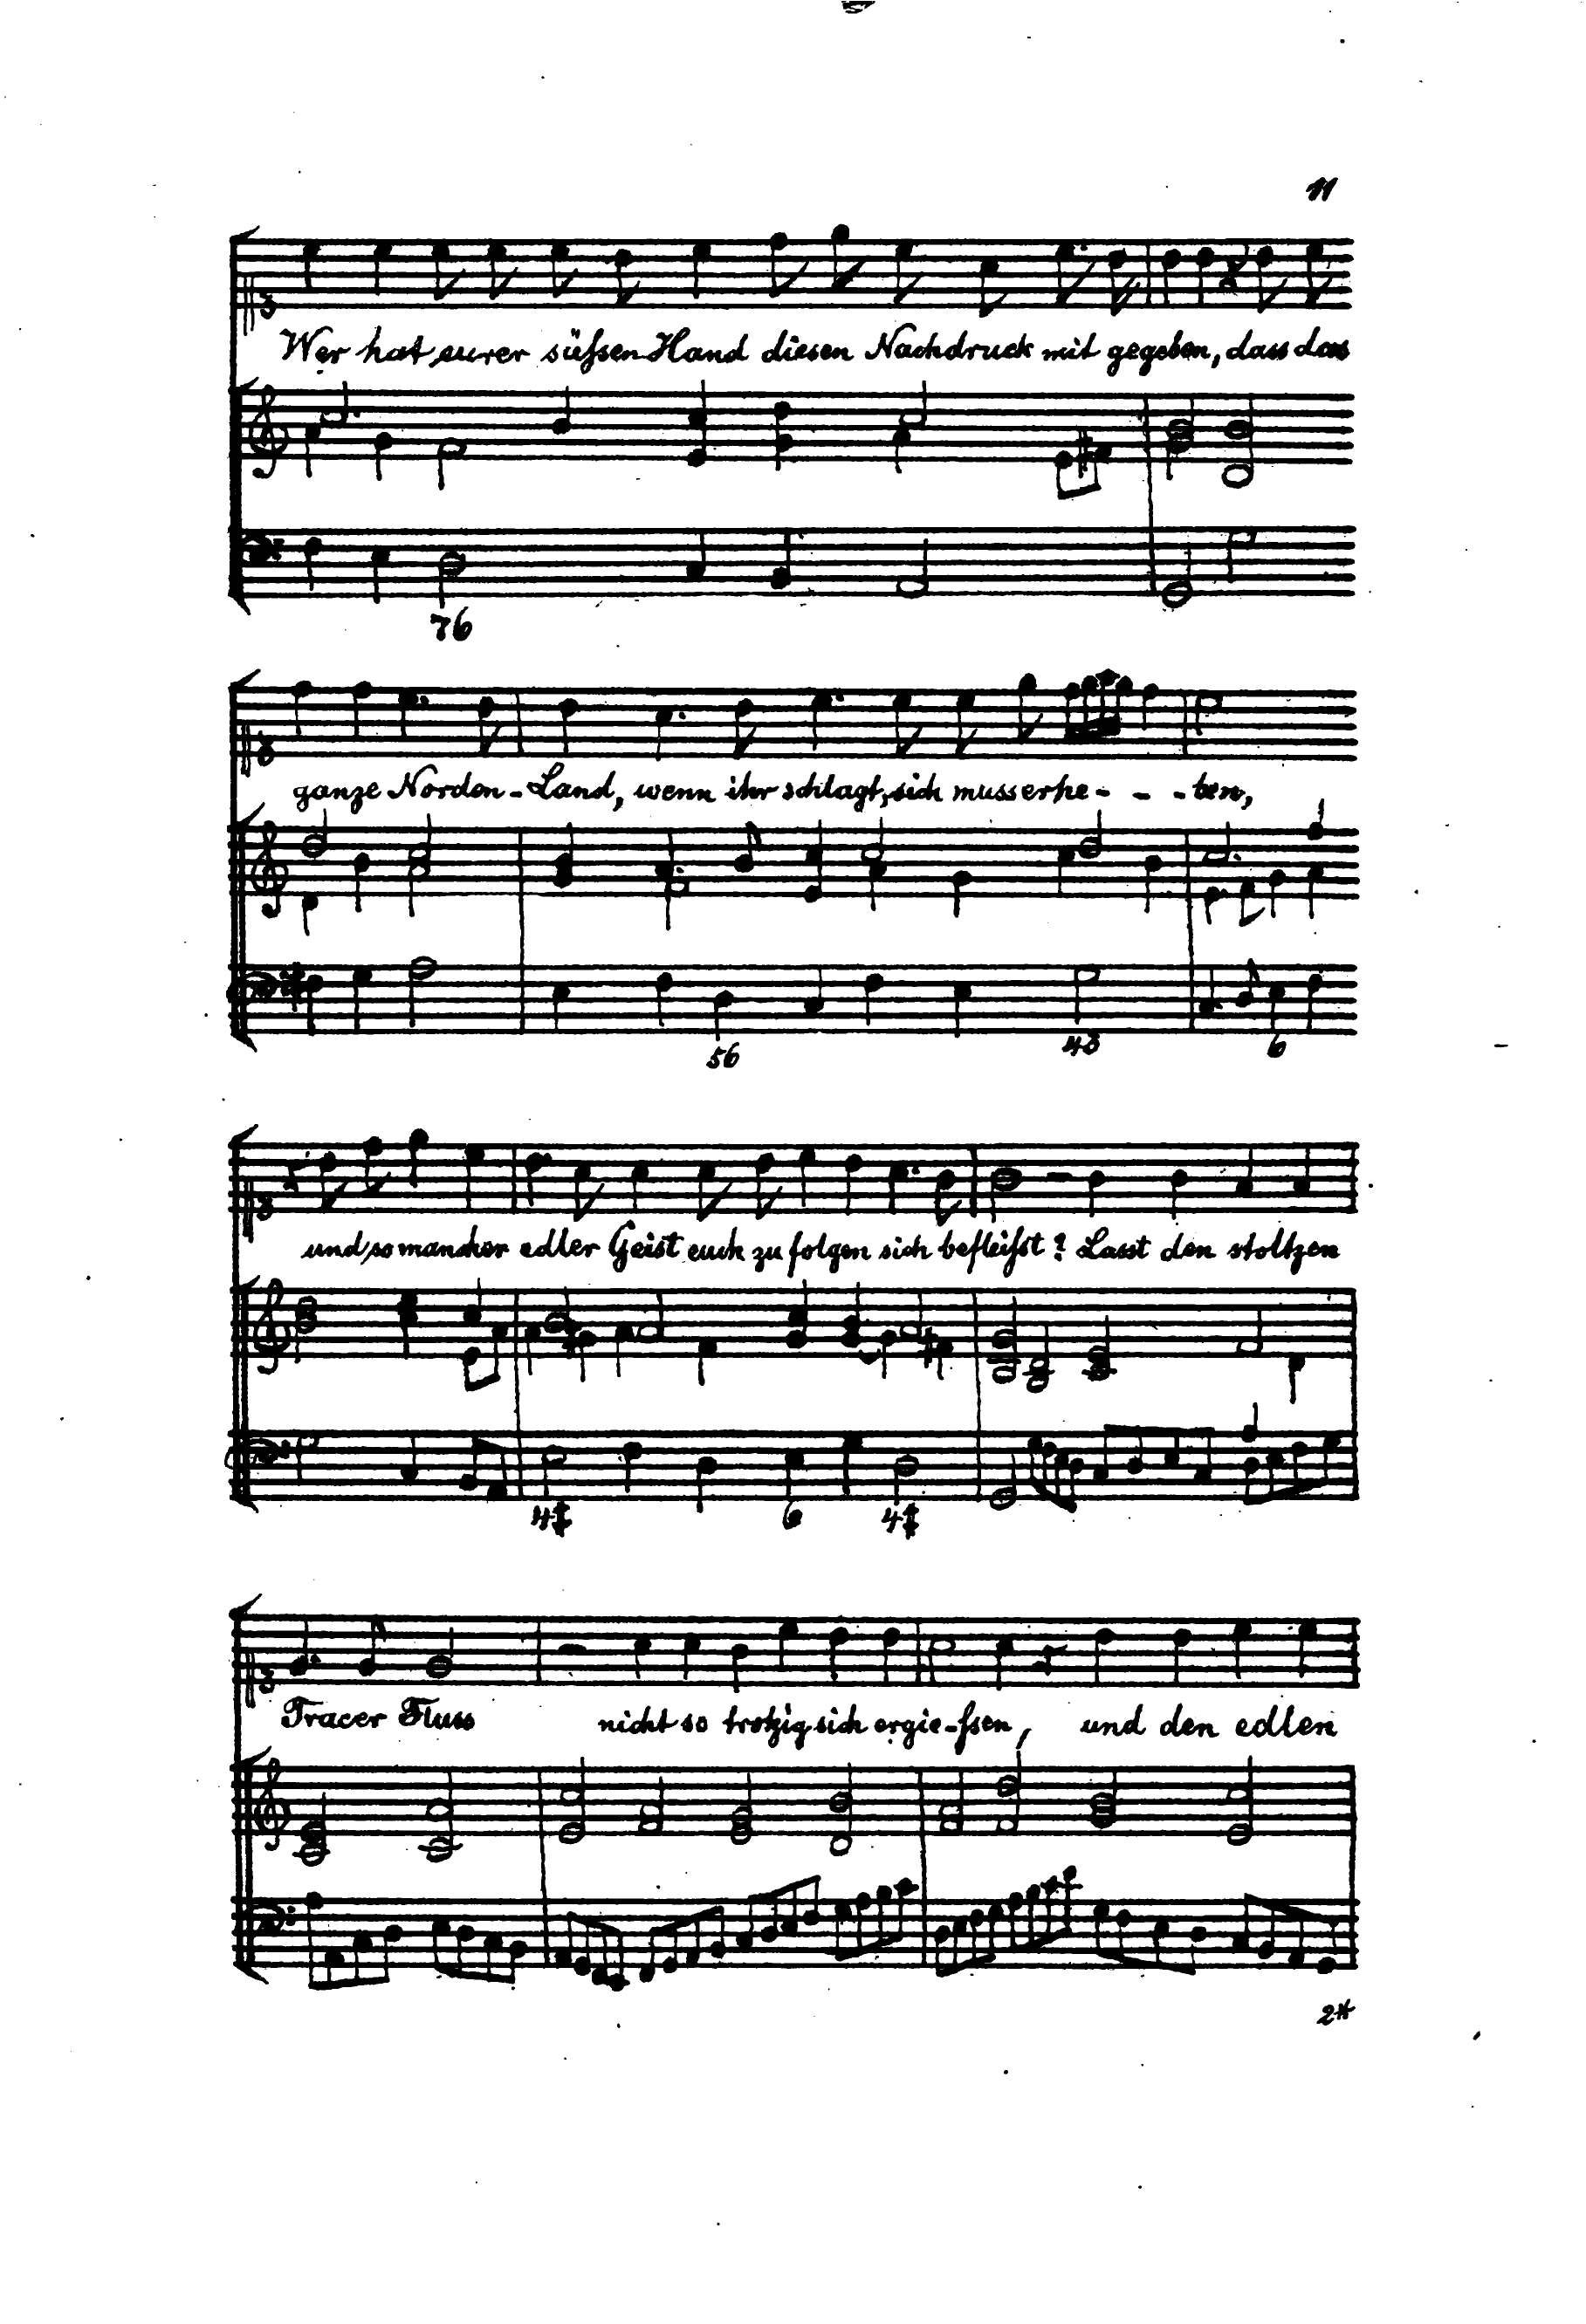 11
Wer hat eurer süssen Hand diesen Nachdruck mit gegeben, dass das
76
ganze Norden-Land, wenn ihr schlagt, sich muss erhe- - - ben,
56 43 6
und so mancher edler Geist euch zu folgen sich befleisst? Lasst den stoltzen
4# 6 4#
Tracer Fluss nicht so trotzig sich ergie-ssen, und den edlen
2*